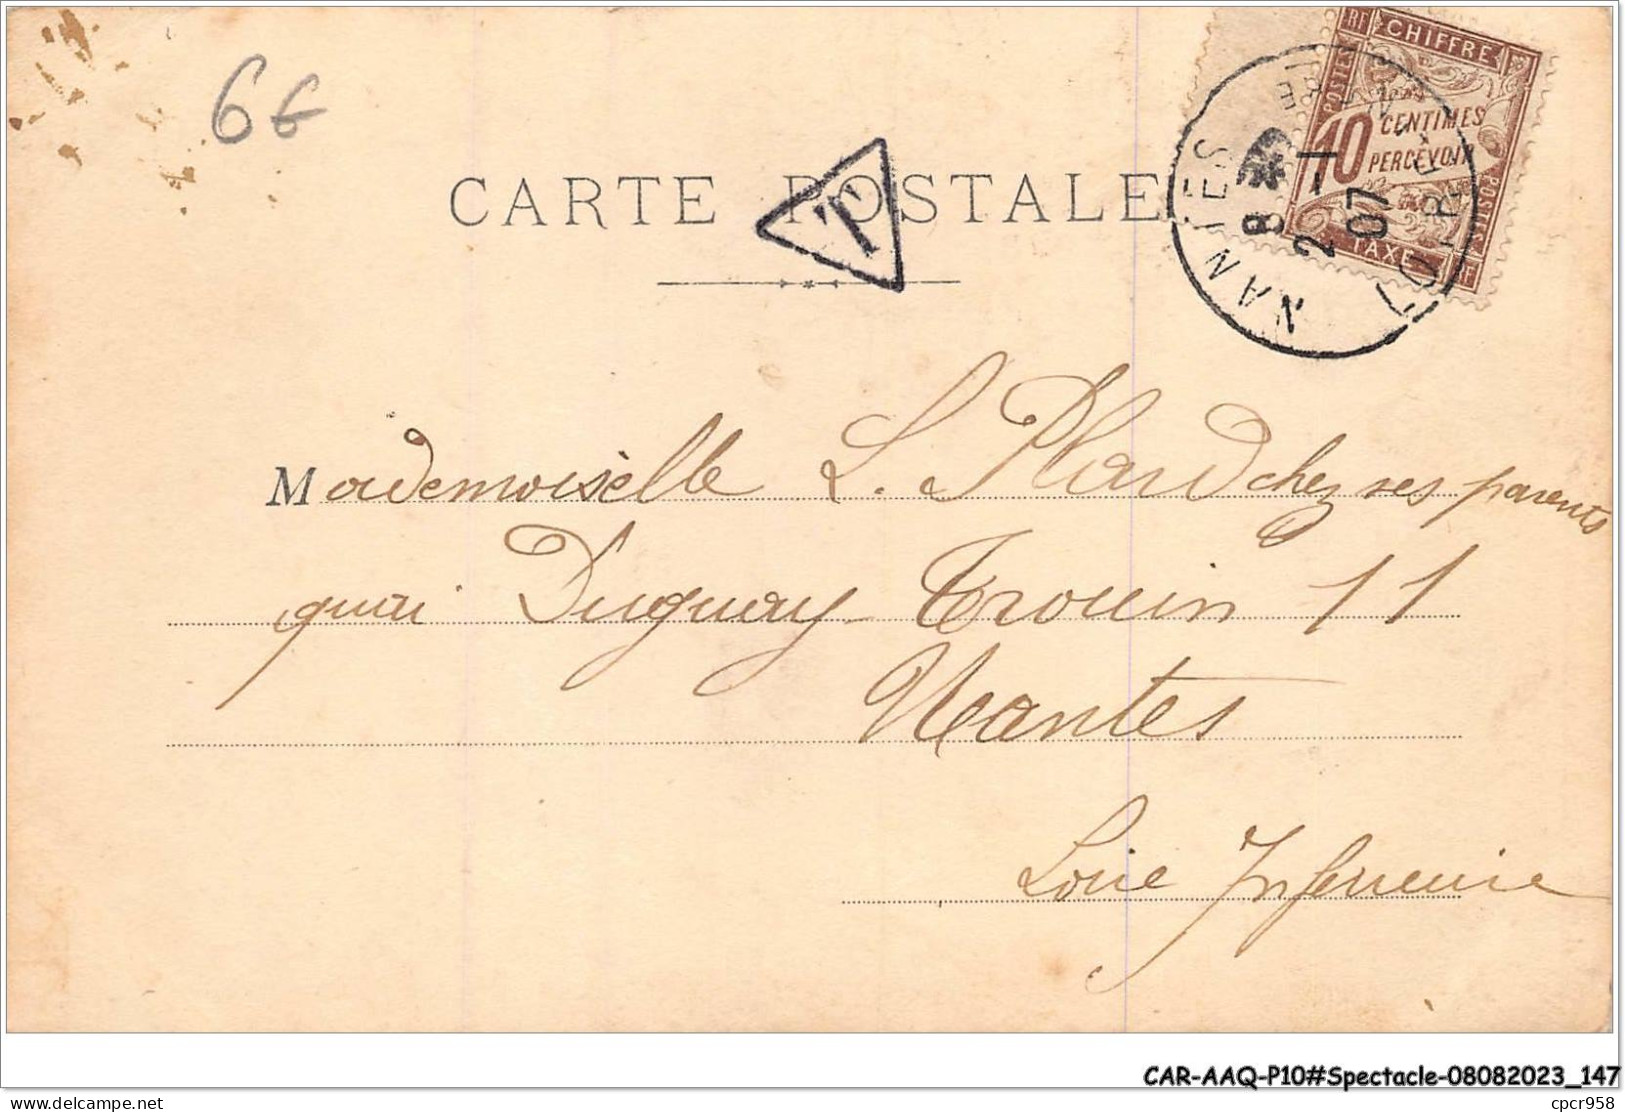 6€
CHIFFRE
RF
POSTES
10 CENTIMES
PERCEVOIR
POSTES
TAXE
NANTES
8
2 - 1
07
LOIRE
CARTE POSTALE
T
Mademoisèlle L. Plard chez ses parents
quai Duguay Trouin 11
Nantes
Loire Inferieure
CAR-AAQ-P10#Spectacle-08082023_147
delcampe.net
cpcr958